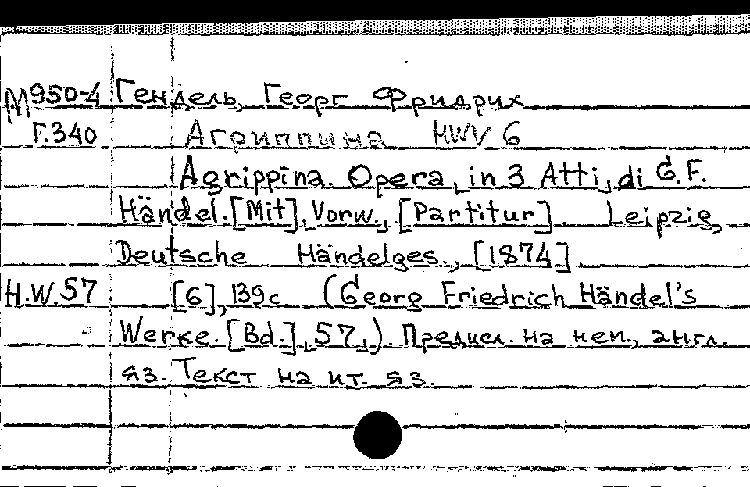 М950-4 Гендель, Георг Фридрих
Г.340 Агриппина HWV 6
Agrippina. Opera, in 3 Atti, di G.F.
Händel. [Mit], Vorw., [Partitur]. Leipzig,
Deutsche Händelges., [1874]
H.W.57 [6], 139с (Georg Friedrich Händel's
Werke. [Bd.], 57,). Предисл. на нем., англ.
яз. Текст на ит. яз.